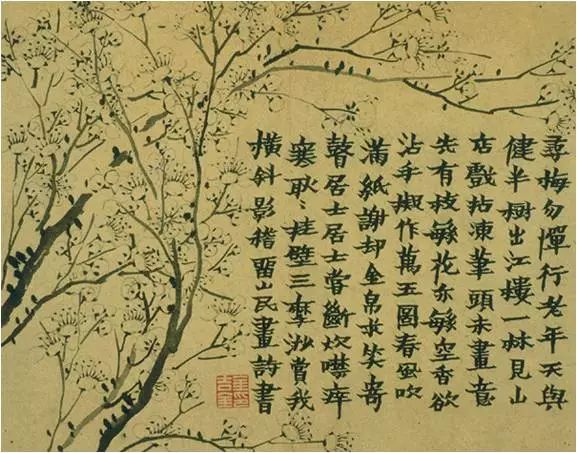 尋梅勿憚行老年天與
健半樹出江樓一林見山
店戲拈凍筆頭未畫意
先有枝緐花亦緐空香欲
沾手作萬玉圖春風吹
滿紙謝却金帛求笑寄
瞽居士居士嘗斷炊噤瘁
耿〻挂壁三摩沙賞我
橫斜影稽留山民畫詩書